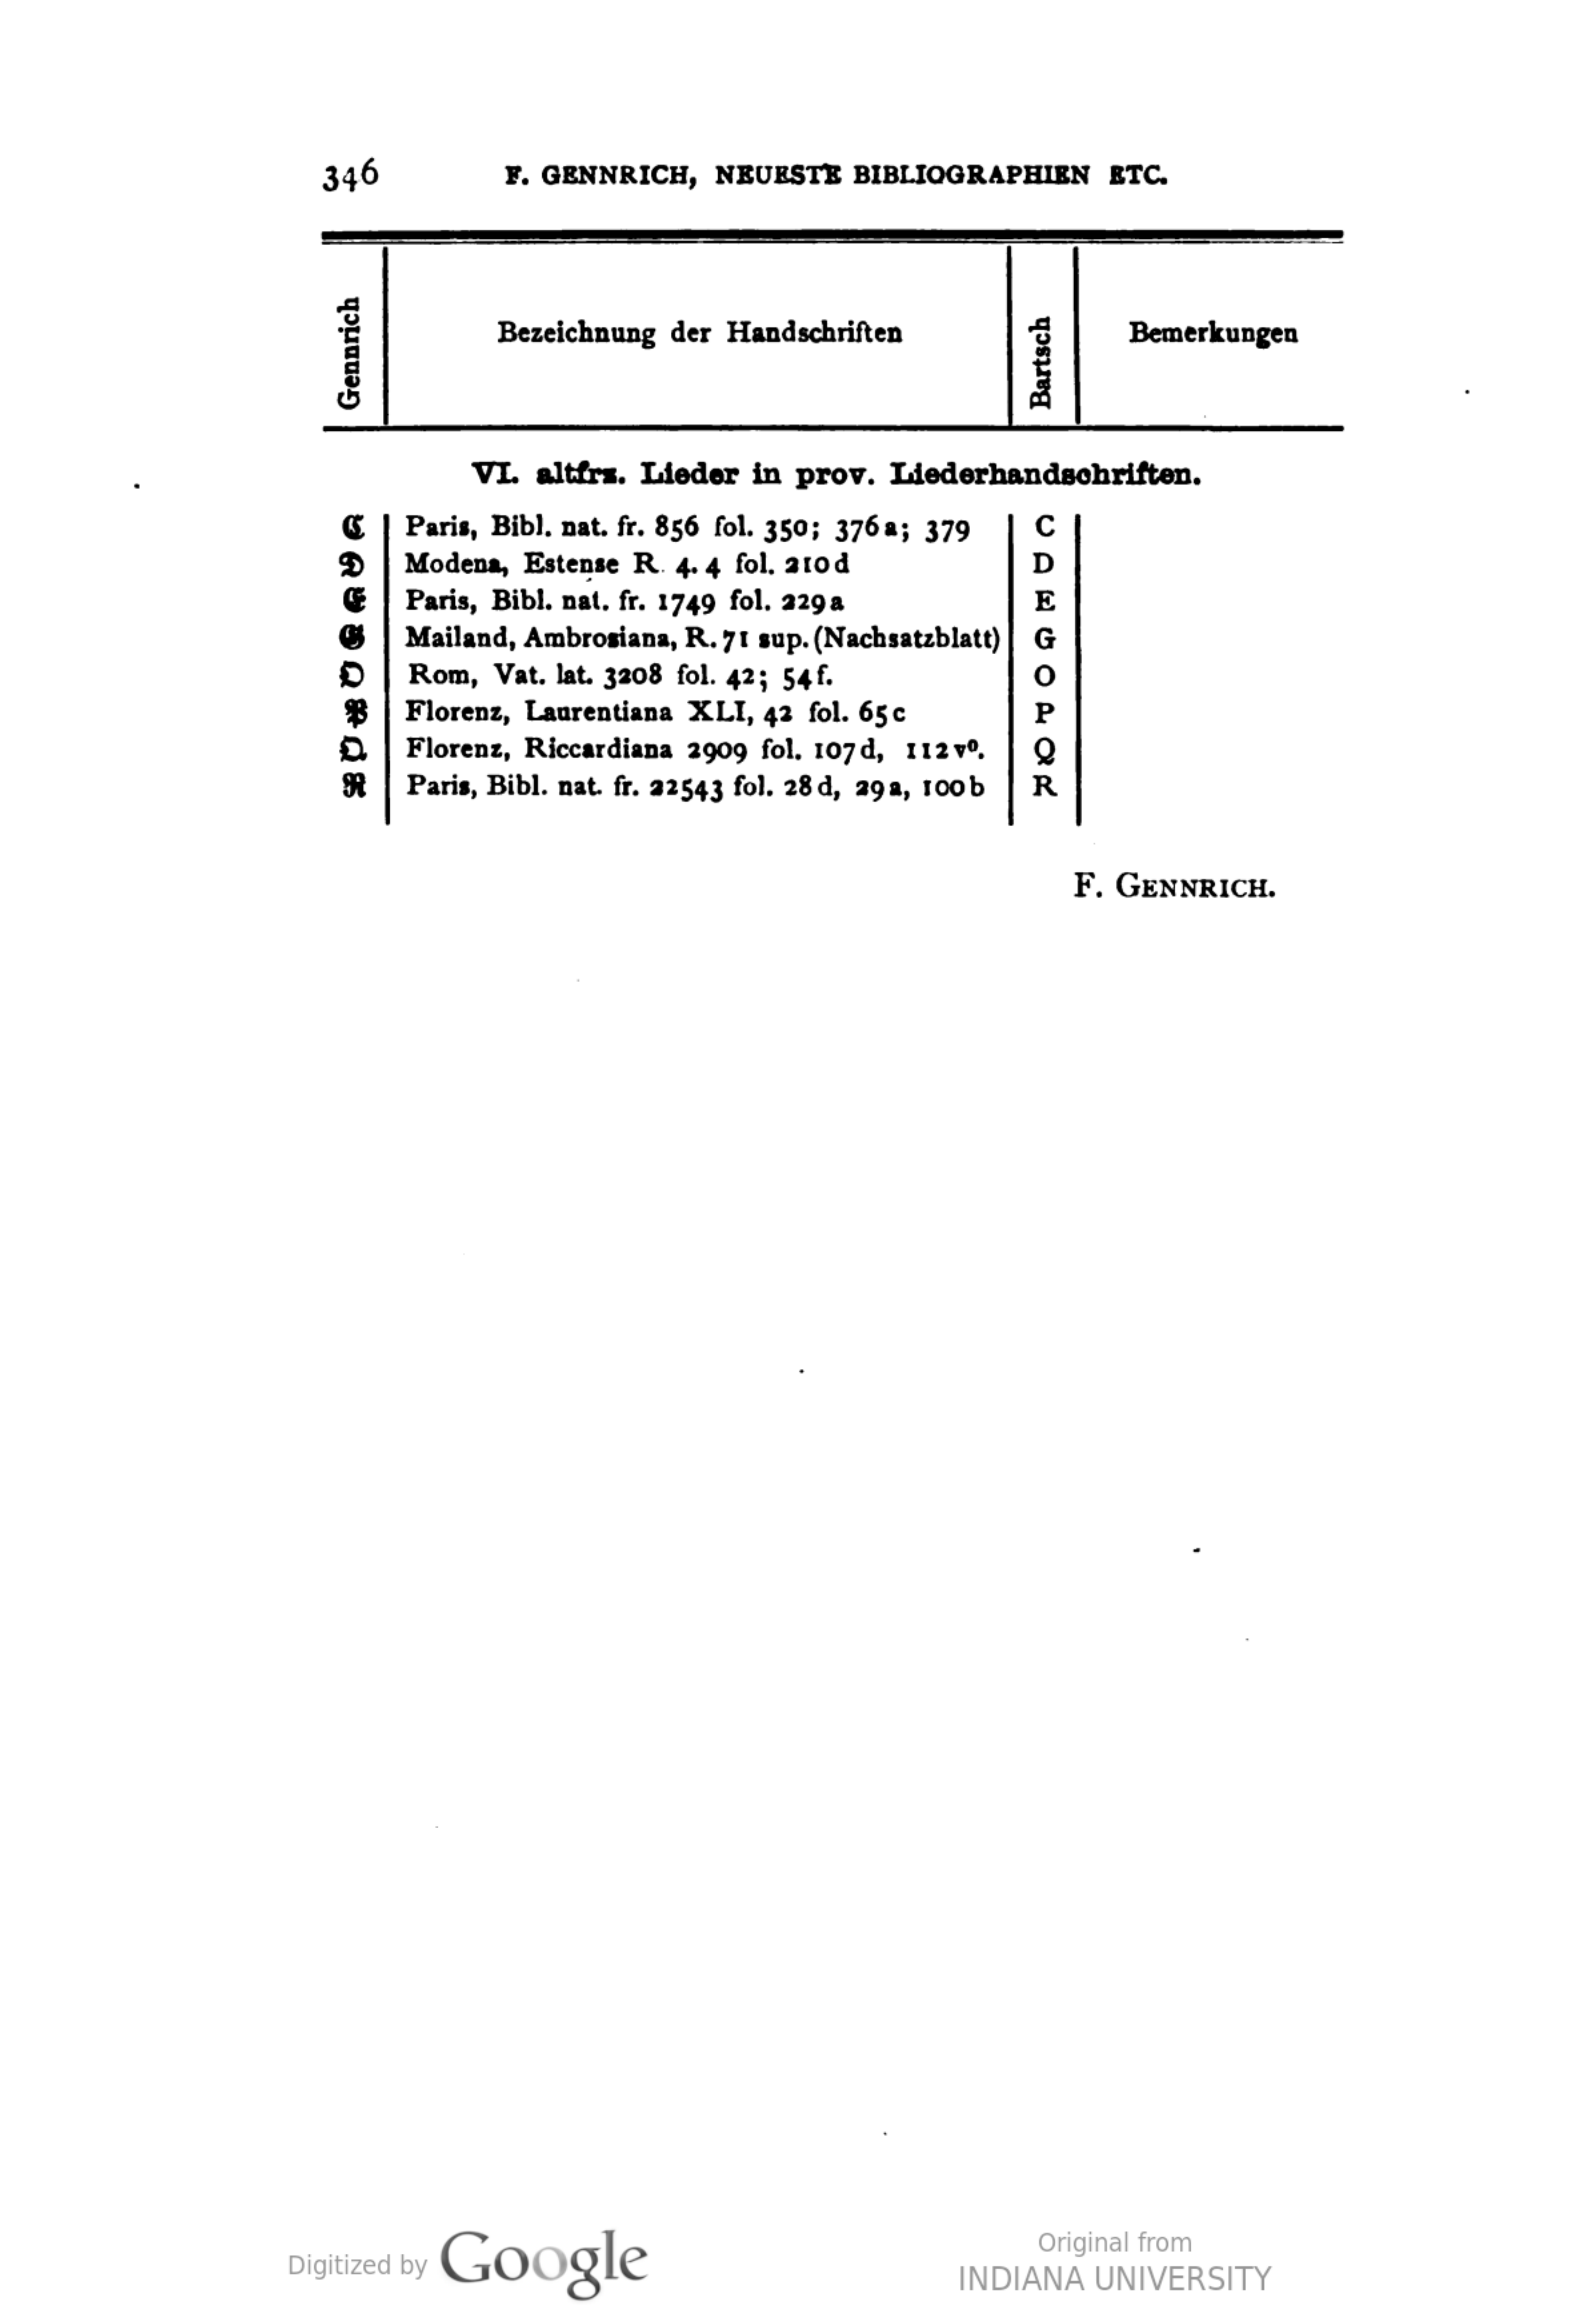 346 F. GENNRICH, NEUESTE BIBLIOGRAPHIEN ETC.
Gennrich
Bezeichnung der Handschriften
Bartsch
Bemerkungen
VI. altfrz. Lieder in prov. Liederhandschriften.
ℭ Paris, Bibl. nat. fr. 856 fol. 350; 376a; 379 C
𝔇 Modena, Estense R. 4. 4 fol. 210d D
𝔈 Paris, Bibl. nat. fr. 1749 fol. 229a E
𝔊 Mailand, Ambrosiana, R. 71 sup. (Nachsatzblatt) G
𝔒 Rom, Vat. lat. 3208 fol. 42; 54f. O
𝔓 Florenz, Laurentiana XLI, 42 fol. 65c P
𝔔 Florenz, Riccardiana 2909 fol. 107d, 112vº. Q
ℜ Paris, Bibl. nat. fr. 22543 fol. 28d, 29a, 100b R
F. GENNRICH.
Digitized by Google
Original from
INDIANA UNIVERSITY